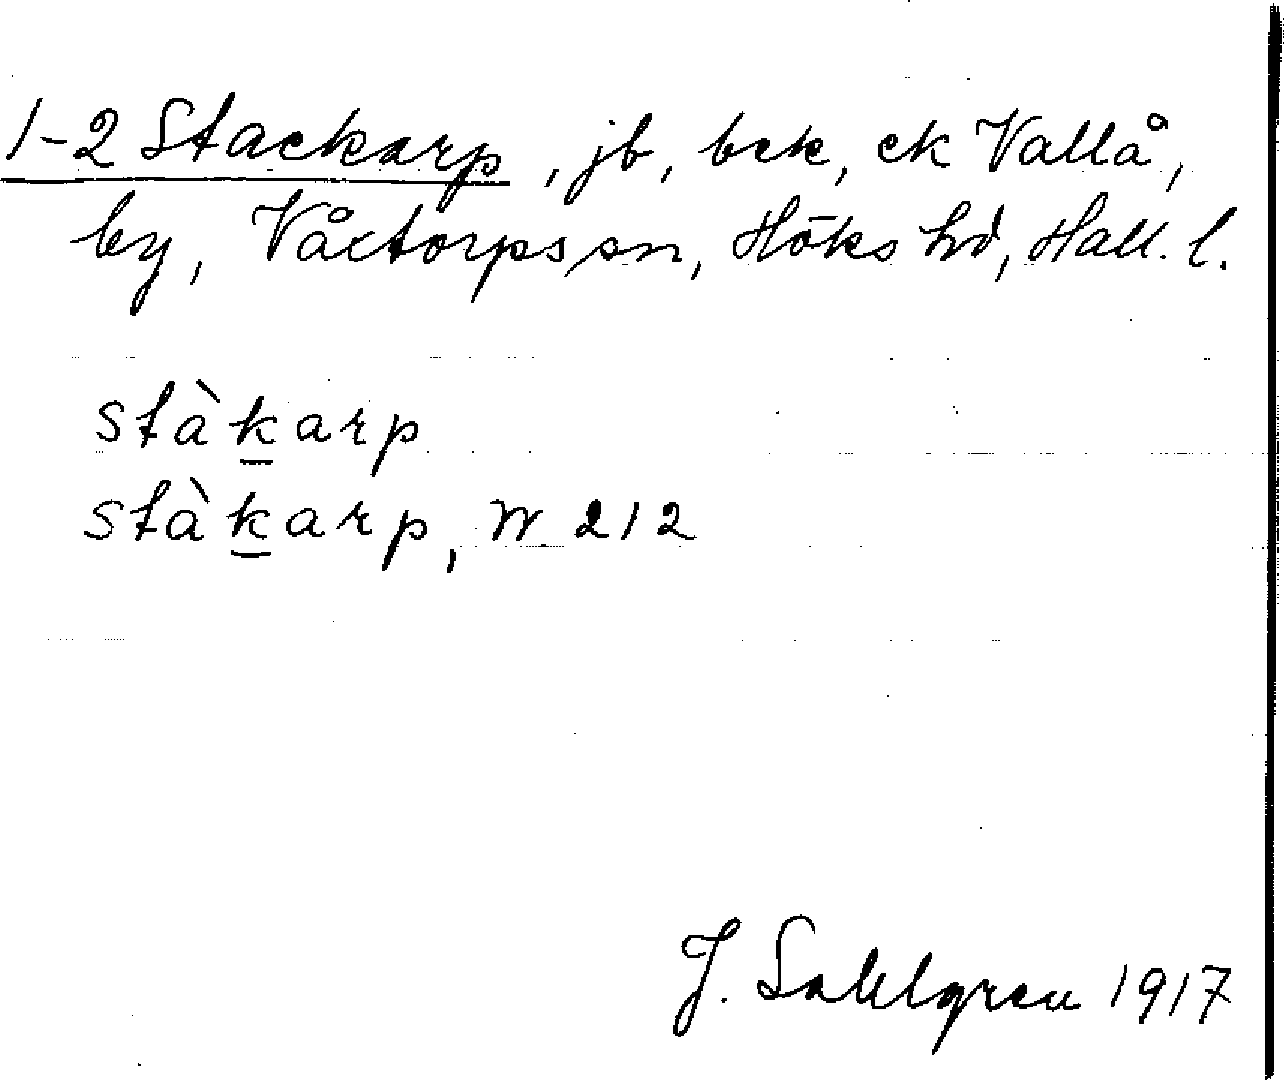 1-2 Stackarp, jb, bek, ek Vallå,
by, Våxtorps sn, Höks hd, Hall. l.
stàkarp
stàkarp, W 212
J. Sahlgren 1917